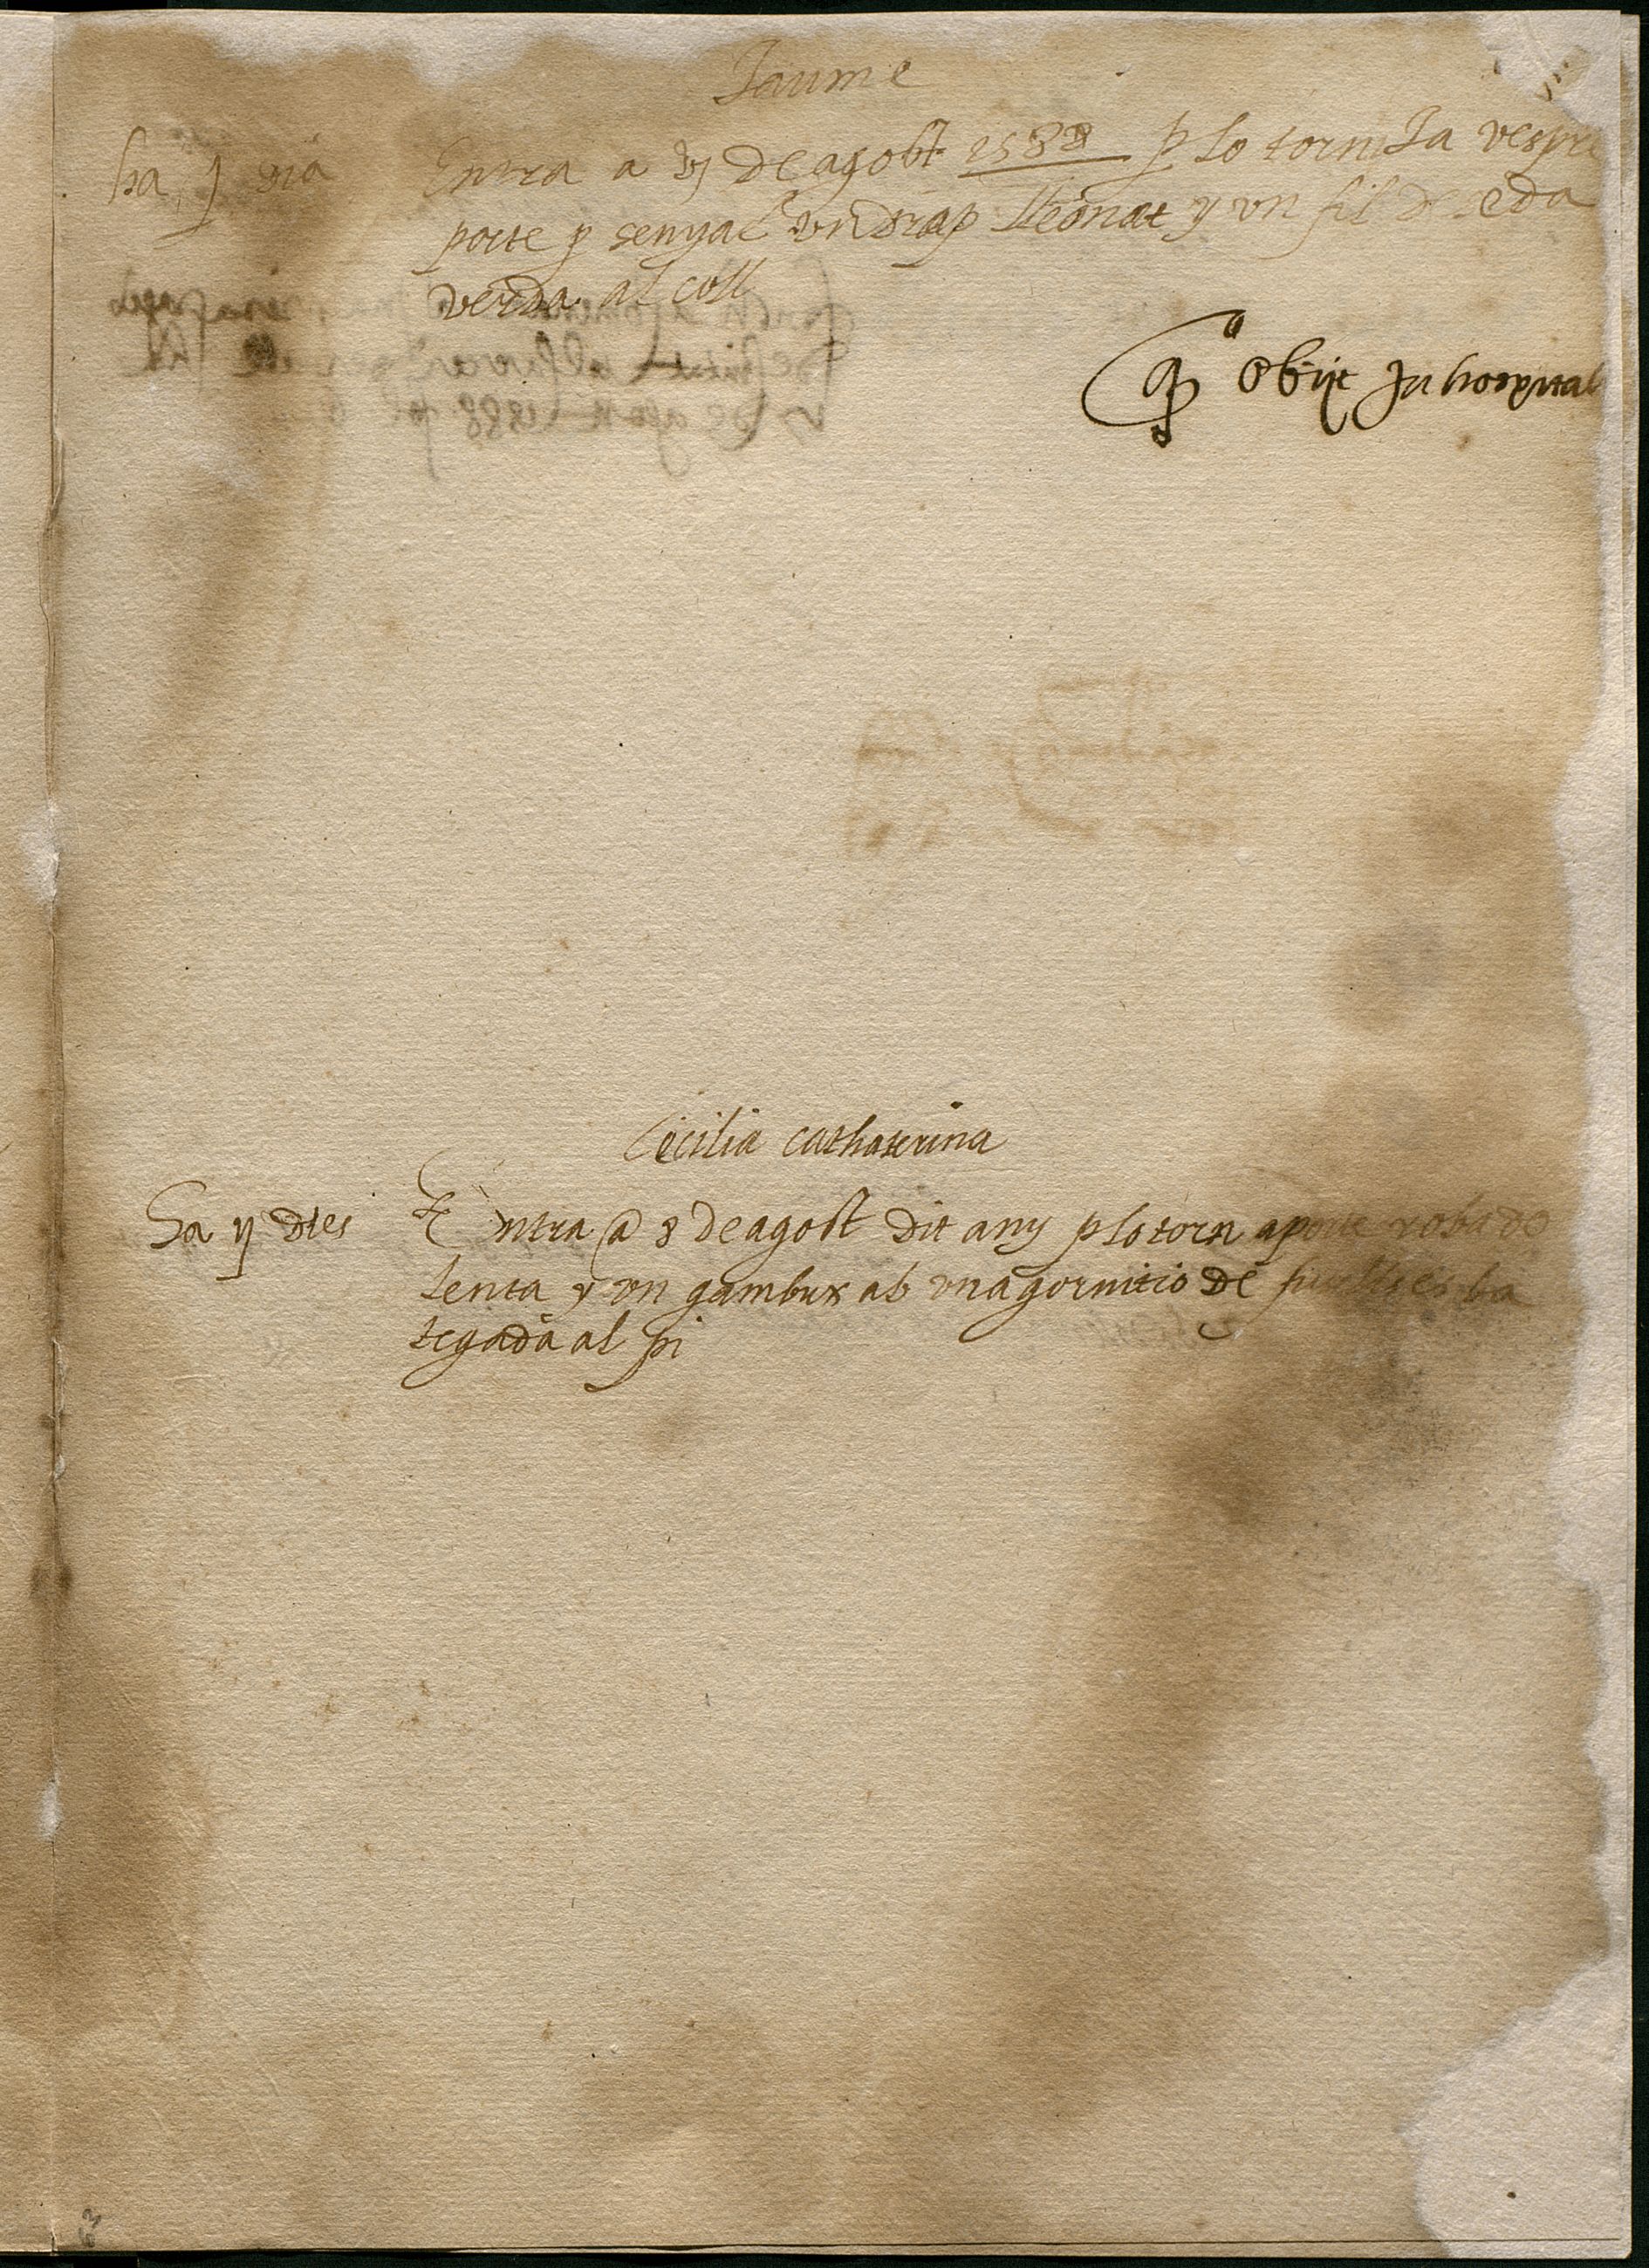 Jaume
ha j dia
Entra a vj de agost 1588 p lo torn la vespre
porte p senyal vn drap lleonat y vn fil de seda
verda al coll
obijt in hospital
Cecilia catharina
ha ij dies
Entra a 8 de agost dit any p lo torn aporte roba de
lenca y vn gambux ab vna gornitio de ba
tegada al pi